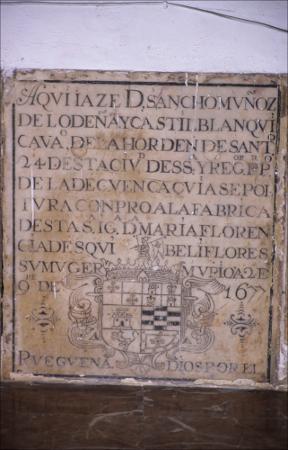 AQVI IAZE D, SANCHO MVÑOZ
DE LODEÑA Y CASTIL BLANQVI
CAVAº, DE LA HORDEN DE SANT
24 DESTA CIVD DE SS, Y REGOR PO
DE LA DE CVENCA CVIA SEPOL
TVRA CONPRO A LA FABRICA
DESTA S, IGª, Dª MARIA, FLOREN
CIA DESQVI BEL I FLORES
SV MVGER MVRIO A 2 E
9E DE 167
RVEGVEN A DIOS POR EL